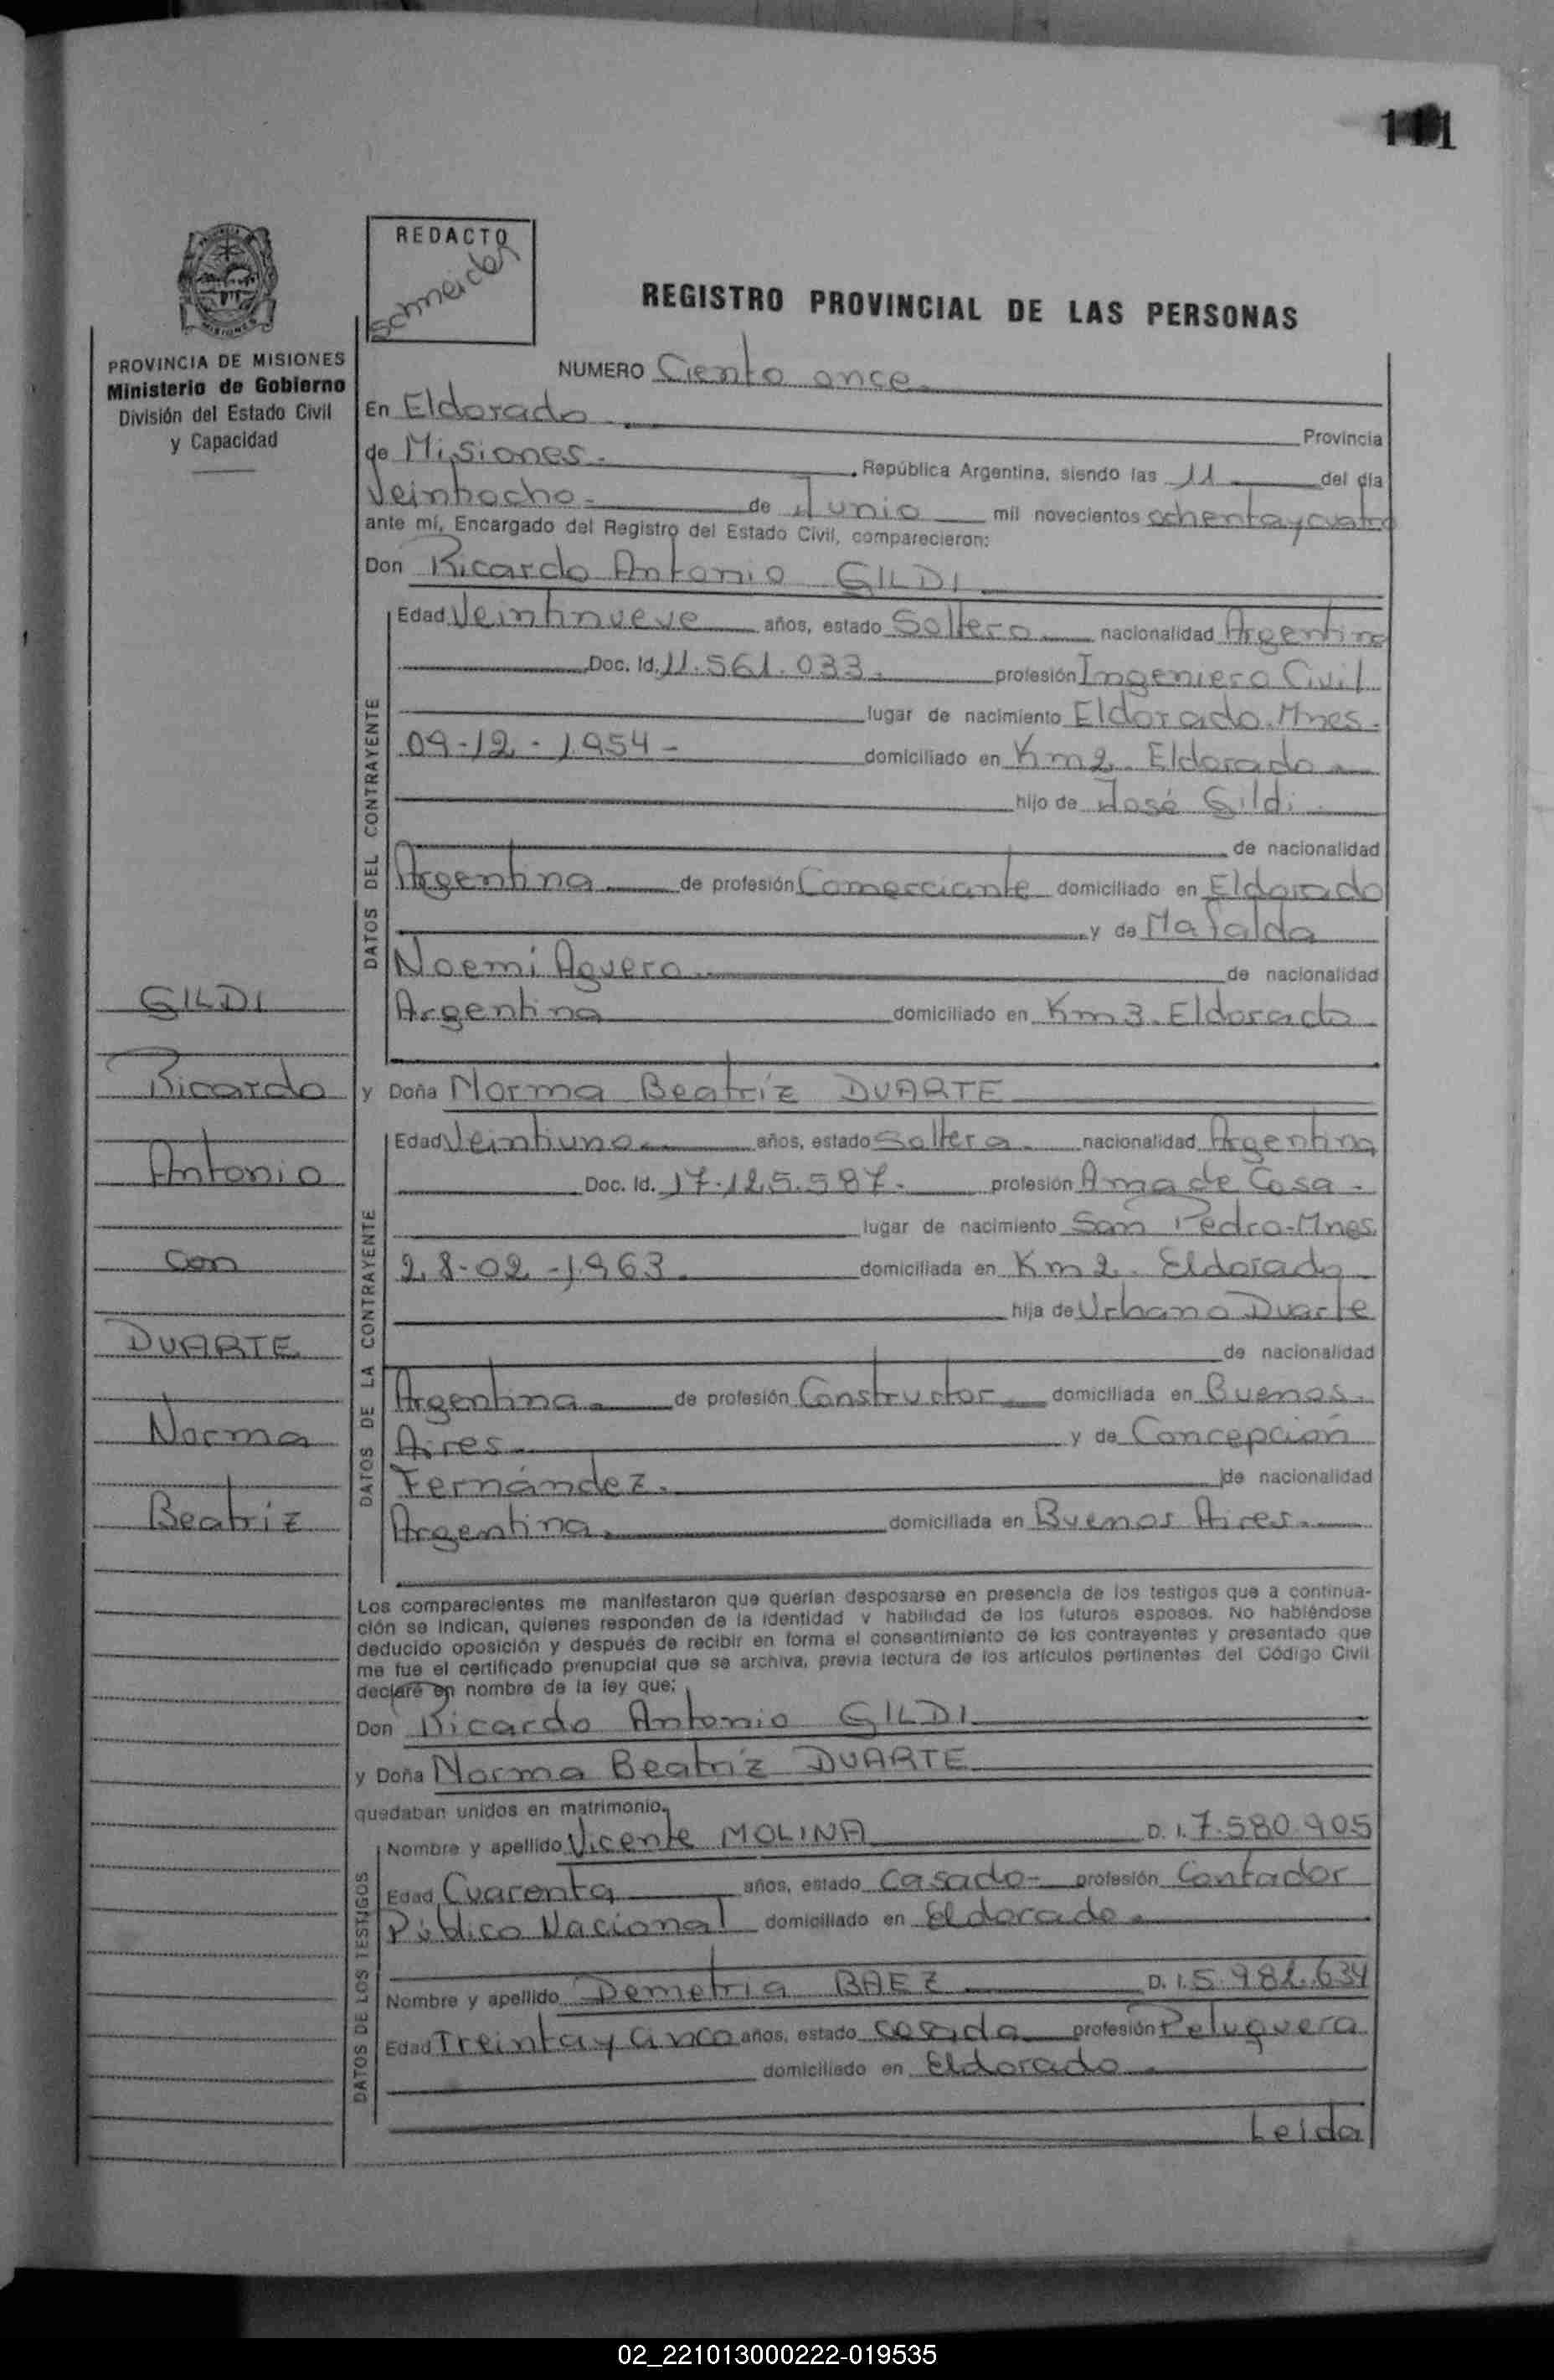 111
REDACTO
Schneider
REGISTRO PROVINCIAL DE LAS PERSONAS
PROVINCIA DE MISIONES
Ministerio de Gobierno
División del Estado Civil
y Capacidad
NUMERO Ciento once
En Eldorado Provincia
de Misiones. República Argentina, siendo las 11 del día
Veintiocho de Junio mil novecientos ochenta y cuatro
ante mí, Encargado del Registro del Estado Civil, comparecieron:
Don Ricardo Antonio GILDI
DATOS DEL CONTRAYENTE
Edad Veintinueve años, estado Soltero nacionalidad Argentino
Doc. Id. 11.561.033. profesión Ingeniero Civil
lugar de nacimiento Eldorado. Mnes.
09-12-1954- domiciliado en Km 2. Eldorado
hijo de José Gildi
de nacionalidad
Argentina de profesión Comerciante domiciliado en Eldorado
y de Mafalda
Noemi Aguero de nacionalidad
Argentina domiciliado en Km 3. Eldorado
y Doña Norma Beatríz DUARTE
DATOS DE LA CONTRAYENTE
Edad Veintiuno años, estado Soltera nacionalidad Argentina
Doc. Id. 17.125.587. profesión Ama de Casa.
lugar de nacimiento San Pedro-Mnes.
28-02-1963. domiciliada en Km 2. Eldorado
hija de Urbano Duarte
de nacionalidad
Argentina de profesión Constructor domiciliada en Buenos
Aires y de Concepción
Fernández. de nacionalidad
Argentina domiciliada en Buenos Aires.
GILDI
Ricardo
Antonio
con
DUARTE
Norma
Beatriz
Los comparecientes me manifestaron que querían desposarse en presencia de los testigos que a continua-
ción se indican, quienes responden de la identidad y habilidad de los futuros esposos. No habiéndose
deducido oposición y después de recibir en forma el consentimiento de los contrayentes y presentado que
me fue el certificado prenupcial que se archiva, previa lectura de los artículos pertinentes del Código Civil
declaré en nombre de la ley que:
Don Ricardo Antonio GILDI
y Doña Norma Beatríz DUARTE
quedaban unidos en matrimonio.
DATOS DE LOS TESTIGOS
Nombre y apellido Vicente MOLINA D. I. 7.580.905
Edad Cuarenta años, estado Casado- profesión Contador
Público Nacional domiciliado en Eldorado.
Nombre y apellido Demetria BAEZ D. I. 5.982.634
Edad Treinta y cinco años, estado casada profesión Peluquera
domiciliado en Eldorado
Leida
02_221013000222-019535